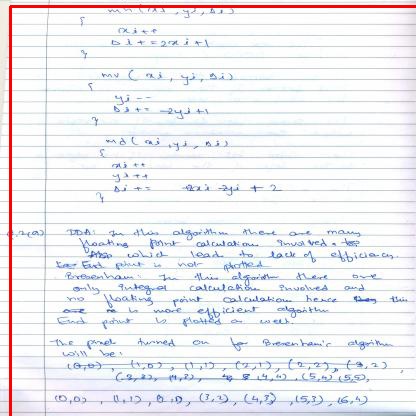 mh (xi, yi, Δi)
{
xi++
Δi += 2xi+1
}
mv ( xi, yi, Δi)
{
yi --
Δi += -2yi+1
}
md ( xi, yi, Δi)
{
xi++
yi++
Δi += 2xi -2yi + 2
}
Q.2(a) DDA: In this algorithm there are many
floating point calculation involved.
which lead to lack of efficiency.
End point is not plotted
Bresenham: In this algorithm there are
only integral calculation involved and
no floating point calculation hence this
is more efficient algorithm
End point is plotted as well.
The pixel turned on for Bresenham's algorithm
will be:
(0,0) , (1,0) , (1,1) , (2,1) , (2,2) , (3,2) ,
(3,3) , (4,3) , (4,4) , (5,4) (5,5),
(0,0) , (1,1) , (3,2) , (4,3) , (5,3) , (6,4)